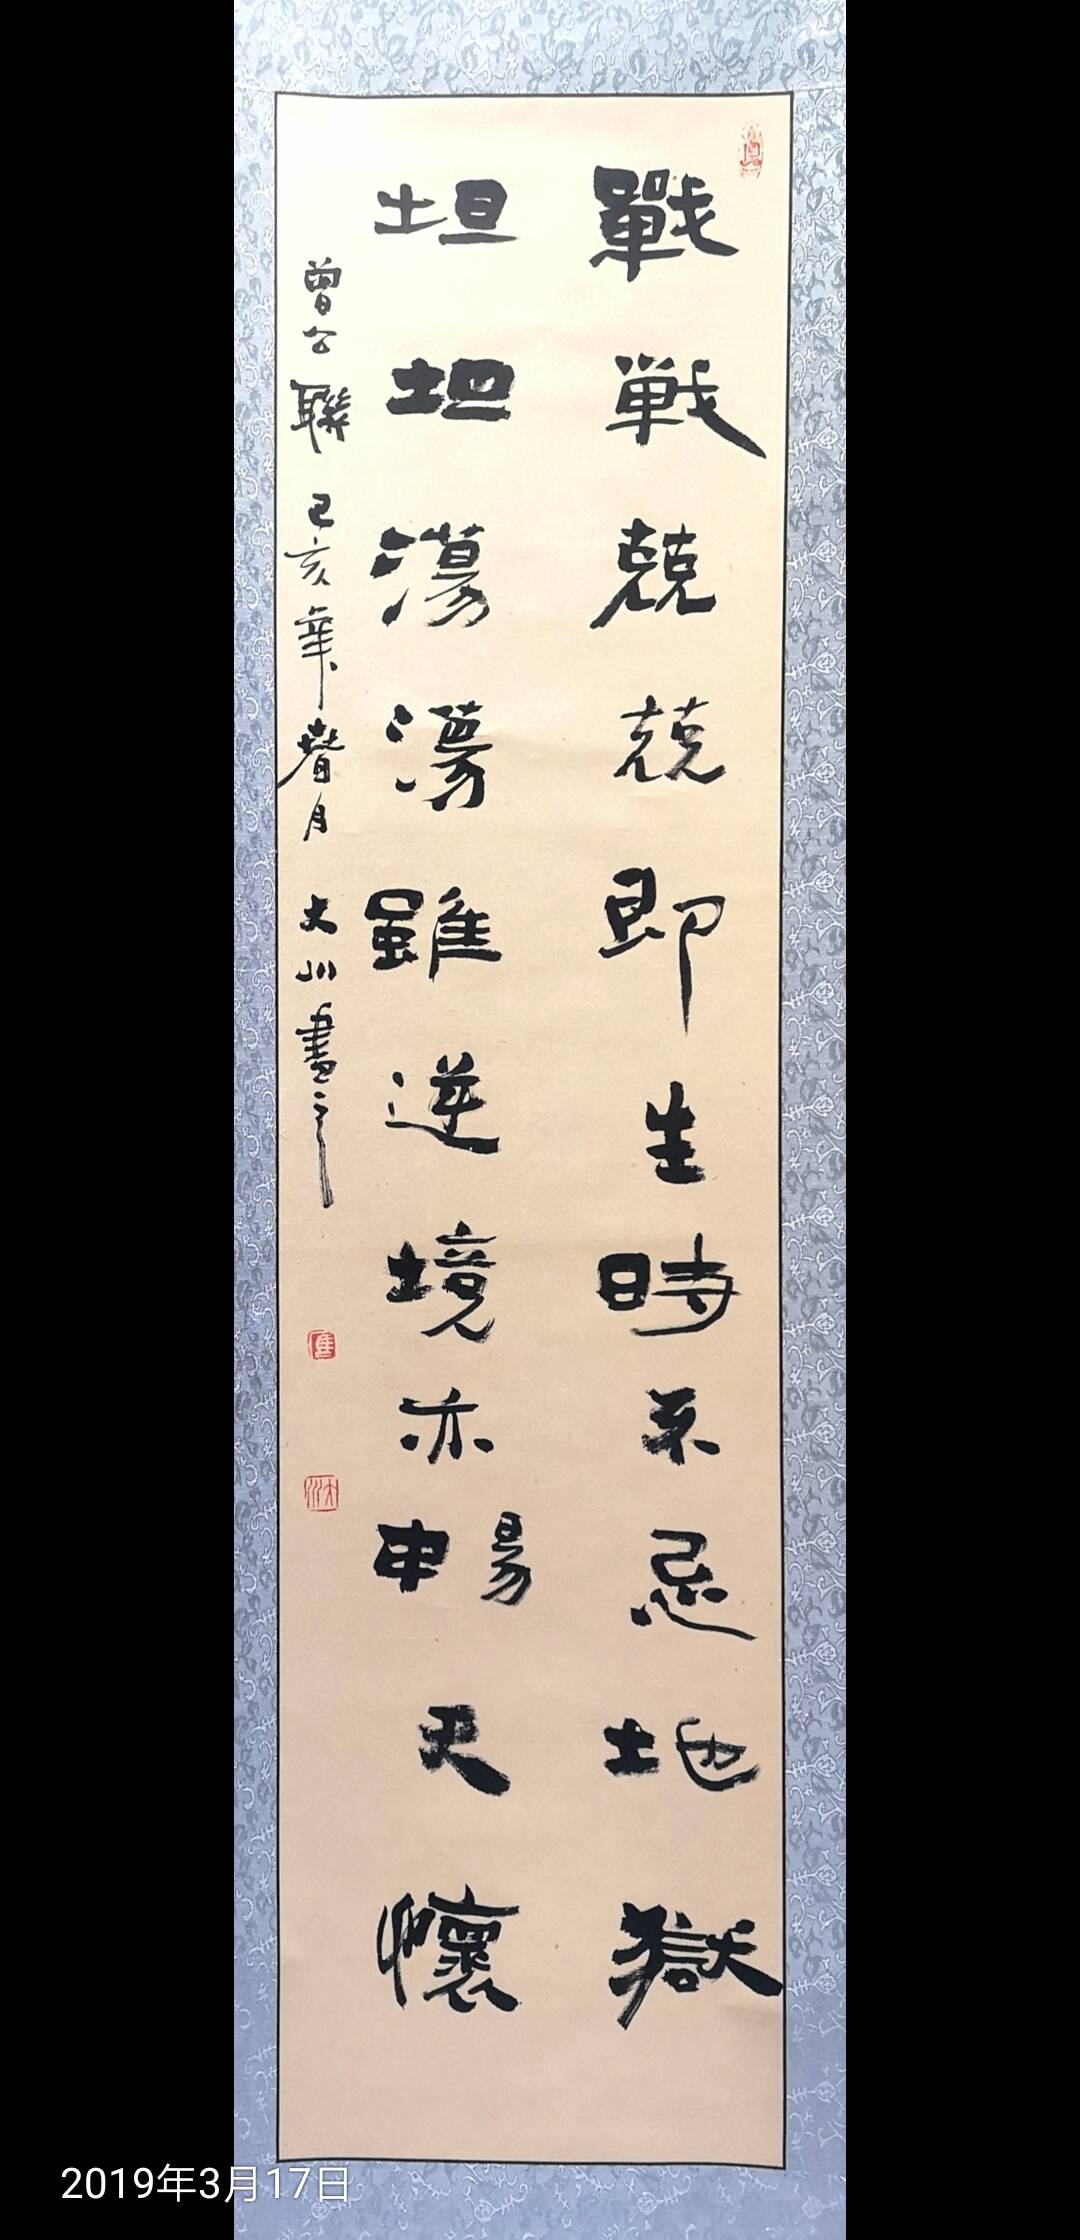 戰戦兢兢即生時不忌地獄
坦坦蕩蕩雖逆境亦暢天懷
曾公聯 己亥年春月 大川書之
2019年3月17日